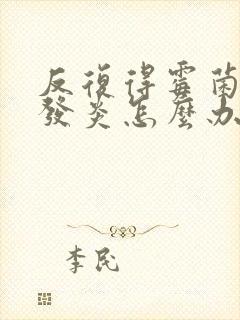 反復得霉菌
發炎怎麼办
李民